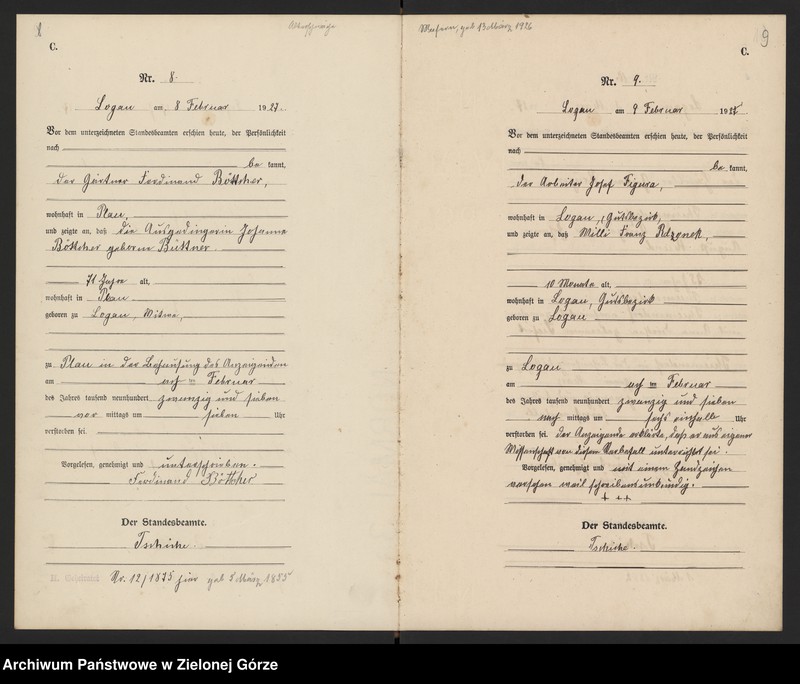 8
C.
Nr. 8.
Logau am 8 Februar 1927.
Vor dem unterzeichneten Standesbeamten erschien heute, der Persönlichkeit
nach
be kannt,
der Gärtner Ferdinand Böttcher,
wohnhaft in Plau,
und zeigte an, daß die Ausgedingerin Johanna
Böttcher geborene Büttner
71 Jahre alt,
wohnhaft in Plau
geboren zu Logau, Witwe,
zu Plau in der Behausung des Anzeigenden
am acht ten Februar
des Jahres tausend neunhundert zwanzig und sieben
vor mittags um sieben Uhr
verstorben sei.
Vorgelesen, genehmigt und unterschrieben.
Ferdinand Böttcher
Der Standesbeamte.
Nr. 12/1875 hier geb 5 März 1855
geb 13 März 1926
9
C.
Nr. 9.
Logau am 9 Februar 1927
Vor dem unterzeichneten Standesbeamten erschien heute, der Persönlichkeit
nach
be kannt,
der Arbeiter Josef Figura,
wohnhaft in Logau, Gutsbezirk,
und zeigte an, daß Willi Franz
10 Monate alt,
wohnhaft in Logau, Gutsbezirk
geboren zu Logau
zu Logau
am acht ten Februar
des Jahres tausend neunhundert zwanzig und sieben
nach mittags um sechs einhalb Uhr
verstorben sei. Der Anzeigende erklärte, daß er aus eigener
Wissenschaft von diesem Sterbefall unterrichtet sei.
Vorgelesen, genehmigt und mit einem Handzeichen
versehen weil schreibensunkundig.
+ + +
Der Standesbeamte.
Archiwum Państwowe w Zielonej Górze